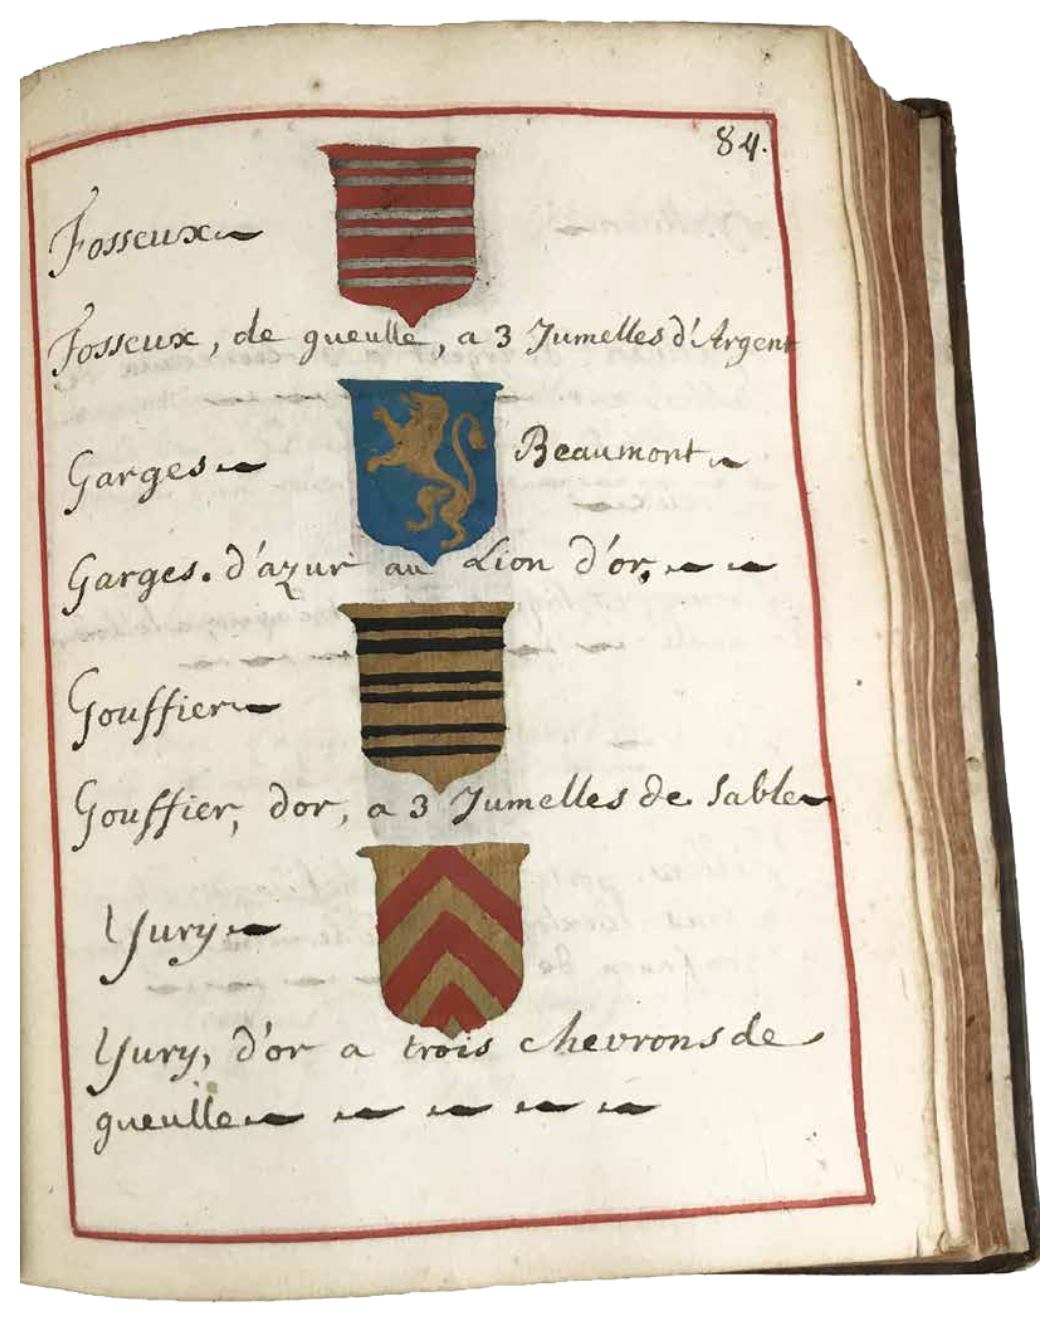 84.
Fosseux
Fosseux, de gueulle, a 3 Jumelles d'Argent
Garges
Beaumont
Garges. d'azur au Lion d'or,
Gouffier
Gouffier, dor, a 3 Jumelles de Sable
Yury
Yury, d'or a trois chevrons de
gueulle